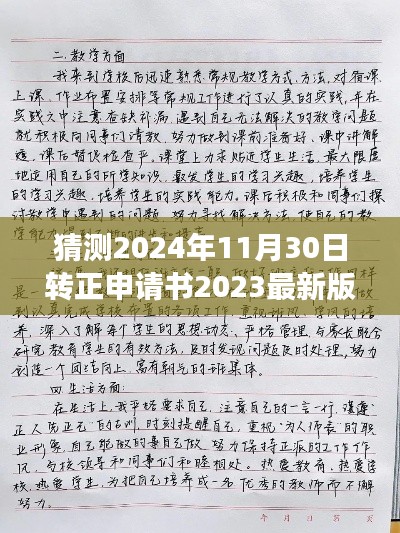 二.教学方面
我来到学校后迅速熟悉常规教学方式、方法,对备课
上课,作业布置安排等常规工作进行了认真的实践,并在
实践之中注意查缺补漏,遇到自己无法解决的教学问题
就积极向同事们请教,努力做到课前准备好,课中讲解解
疑,课后督促检查严,课堂上力求贴近学生生活,最大限度
地运用自己的所学知识,激发学生的学习兴趣,培养学生
的学习兴趣,培养学生的实践能力。课后积极和同事们探
讨教学中遇到的问题,努力寻找解决方法,使自己的教
学能力
猜测2024年11月30日
转正申请书2023最新版
到认真完成学校布置的各项工作,重视班风、学风的培
养,深入了解每个学生的思想动态,严格管理,与家长联合
研究教育学生的有效方法,及时发现问题及时处理,努力
创造一个团结向上,富有朝气的班集体。
四.生活方面:
在生活上,我严格要求自己,注意自己的一言一行,谨遵
正人先正己"的古训,时刻提醒自己,重视"为人师表"的
职业形象,自己能做的事自己做,努力保持正派的工作作
风,与校领导和同事们和睦相处。热爱教育,热爱学
校,热爱学生,为把自己培养成一名优秀的教师而不懈
努力。
年 月 日 第 页